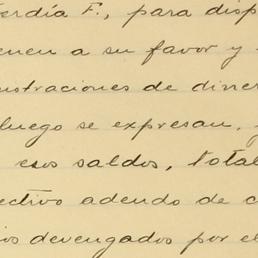 erdía F., para disp
enen a su favor y
nistraciones de diner
luego se expresan,
esos saldos, total
ectivo adendo de c
ios devengados por el